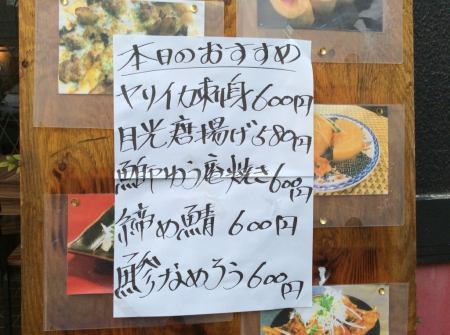 本日のおすすめ
ヤリイカ刺身600円
目光唐揚げ580円
鰤ゆう庵焼き600円
締め鯖 600円
鯵なめろう600円